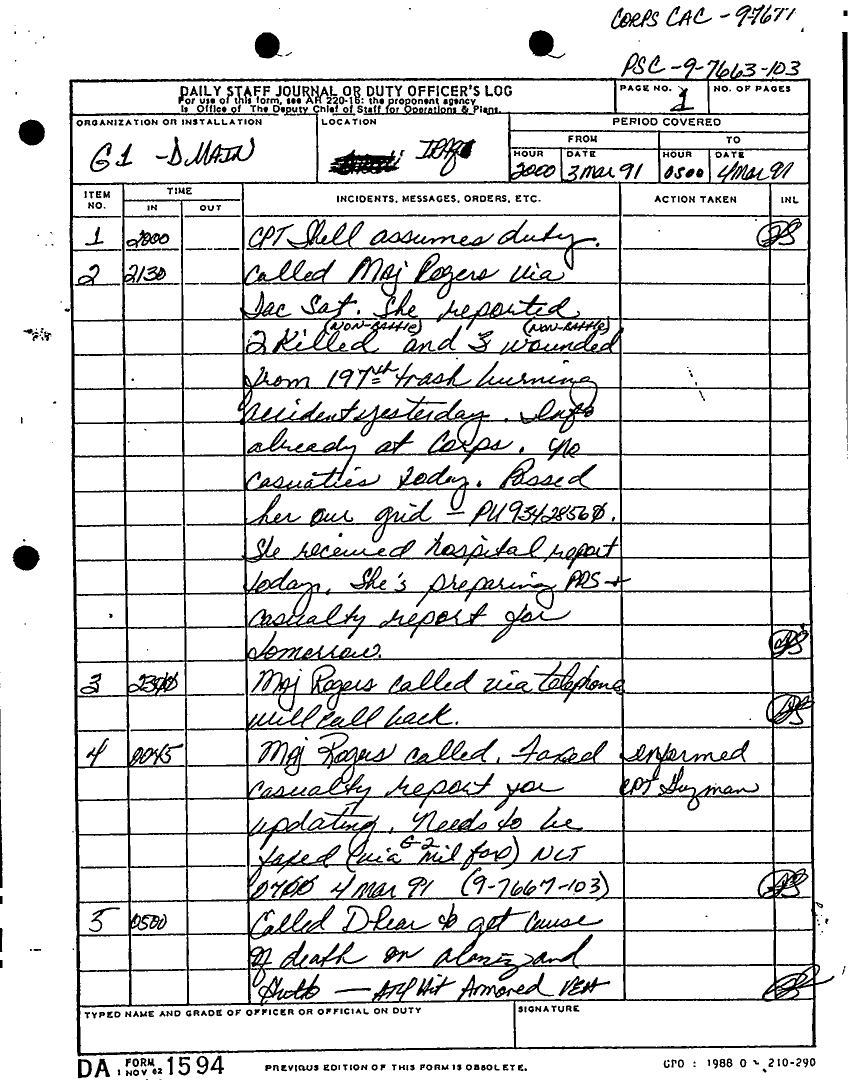 CORPS CAC - 9-7671
PSC - 9-7663-103
DAILY STAFF JOURNAL OR DUTY OFFICER'S LOG
For use of this form, see AR 220-15; the proponent agency
is Office of The Deputy Chief of Staff for Operations & Plans.
PAGE NO. 1
NO. OF PAGES
ORGANIZATION OR INSTALLATION
G1 - DMAIN
LOCATION
IRAQ
PERIOD COVERED
FROM TO
HOUR DATE HOUR DATE
2000 3 Mar 91 0500 4 Mar 91
ITEM NO. TIME IN OUT INCIDENTS, MESSAGES, ORDERS, ETC. ACTION TAKEN INL
1 2000 CPT Shell assumes duty.
2 2130 Called Maj Rogers via
Tac Sat. She reported
(NON-BATTLE) (NON-BATTLE)
2 Killed and 3 wounded
from 197th trash burning
accident yesterday. Info
already at Corps. No
casuaties today. Passed
her our grid - PU93428560.
She received hospital report
today. She's preparing PRS +
casualty report for
tomorrow.
3 Maj Rogers called via telephone
will call back.
4 0045 Maj Rogers called. Faxed Informed
casualty report for CPT Guzman
updating. Needs to be
G-2
faxed (via mil fax) NLT
0700 4 Mar 91 (9-7667-103)
5 0500 Called D Rear to get cause
of death on and
— Hit Armored VEH
TYPED NAME AND GRADE OF OFFICER OR OFFICIAL ON DUTY
SIGNATURE
DA FORM 1 NOV 62 1594
PREVIOUS EDITION OF THIS FORM IS OBSOLETE.
GPO : 1988 O - 210-290